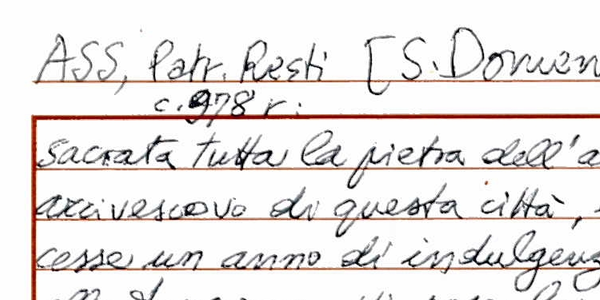 ASS, Patr. Resti [S. Domen
c. 978 r:
sacrata tutta la pietra dell'a
arcivescovo di questa città,
cesse un anno di indulgenz